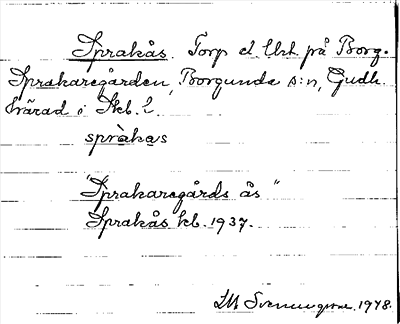 Sprakås. Torp el lht på Borg.
Sprakaregården, Borgunda s:n, Gudh.
härad i Skb. l.
sprakas
"Sprakaregårds ås"
Sprakås kb. 1937.
Svenungsson. 1978.